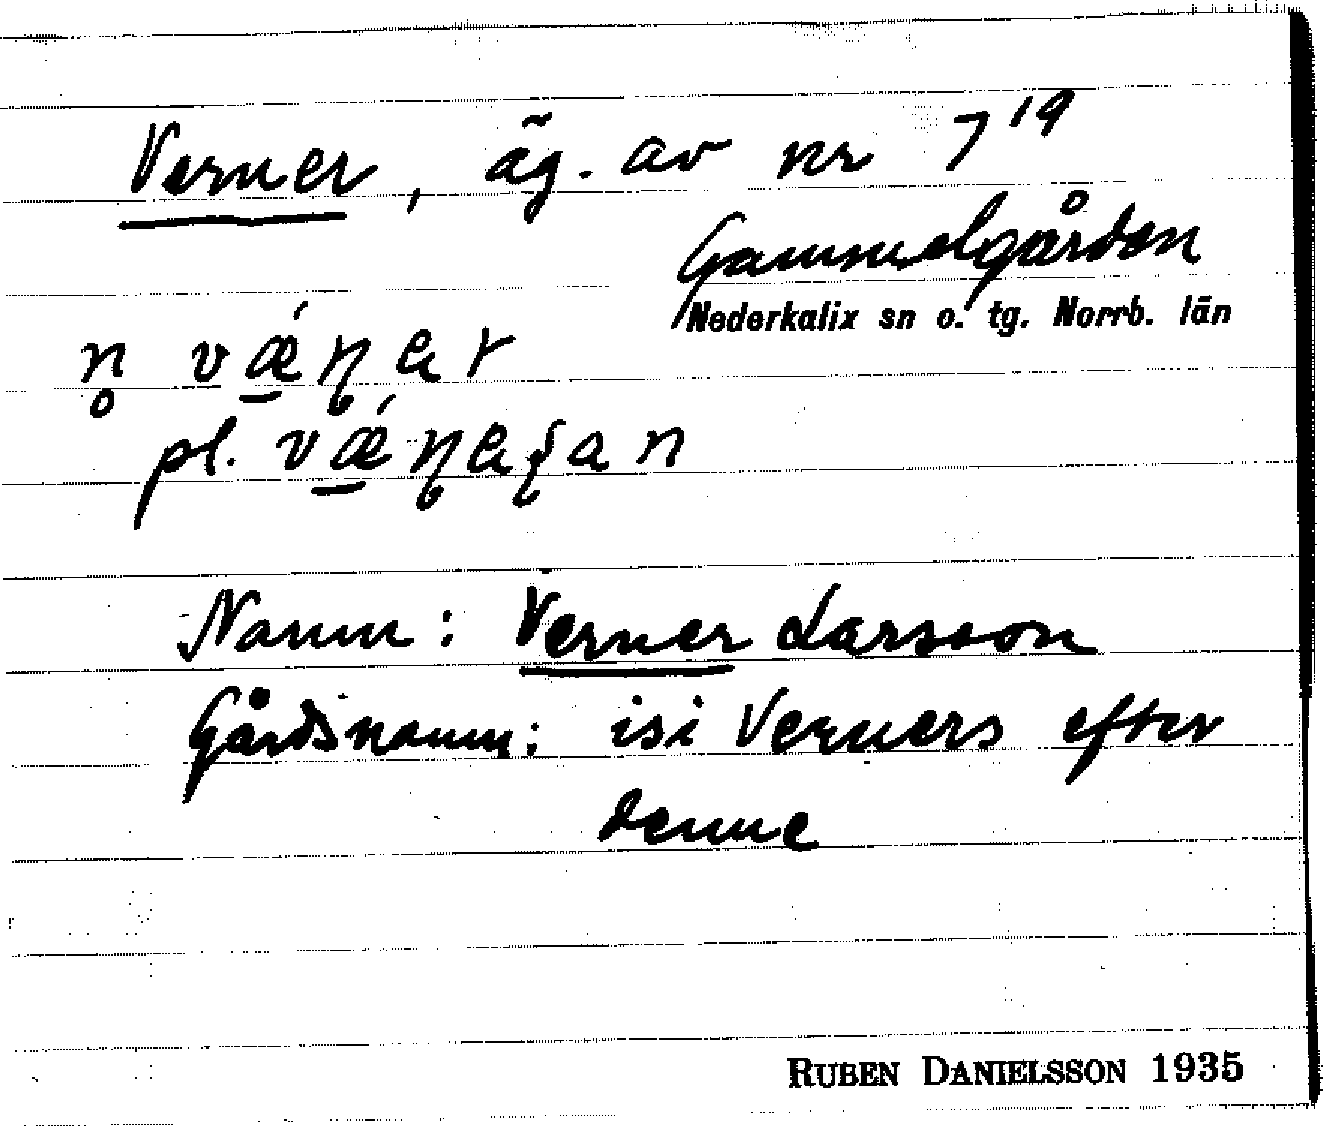 Verner, äg. av nr 7¹⁹
Gammelgården
Nederkalix sn o. tg. Norrb. län
n̥ vǽ̱ɳer
pl. vǽ̱ɳeʂan
Namn: Verner Larsson
Gårdsnamn: isi Verners efter
denne
RUBEN DANIELSSON 1935